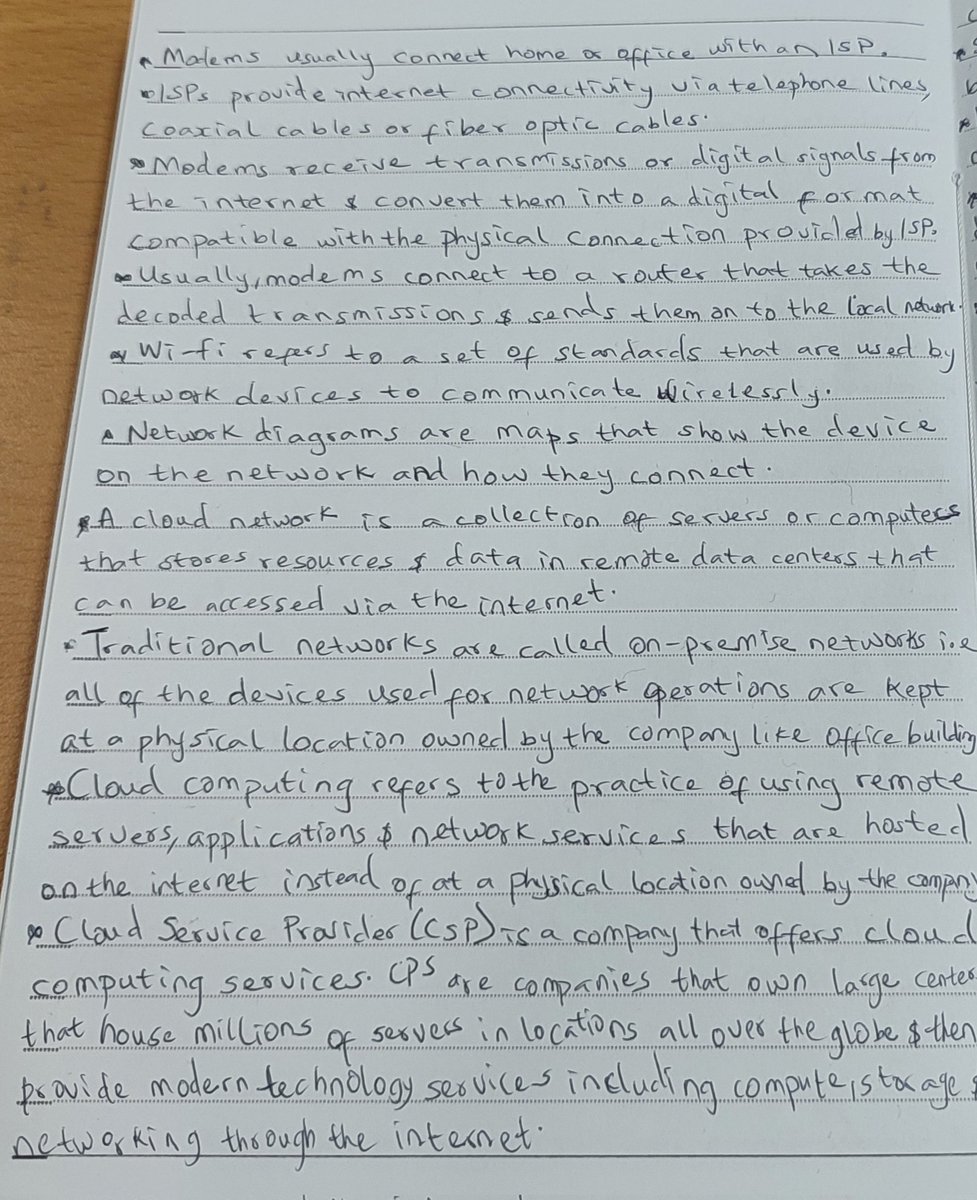 • Modems usually connect home or office with an ISP.
• ISPs provide internet connectivity via telephone lines,
coaxial cables or fiber optic cables.
• Modems receive transmissions or digital signals from
the internet & convert them into a digital format
compatible with the physical connection provided by ISP.
• Usually, modems connect to a router that takes the
decoded transmissions & sends them on to the local network.
• Wi-fi refers to a set of standards that are used by
network devices to communicate wirelessly.
• Network diagrams are maps that show the device
on the network and how they connect.
• A cloud network is a collection of servers or computers
that stores resources & data in remote data centers that
can be accessed via the internet.
• Traditional networks are called on-premise networks i.e
all of the devices used for network operations are kept
at a physical location owned by the company like office building
• Cloud computing refers to the practice of using remote
servers, applications & network services that are hosted
on the internet instead of at a physical location owned by the company
• Cloud Service Provider (CSP) is a company that offers cloud
computing services. CPS are companies that own large center
that house millions of servers in locations all over the globe & then
provide modern technology services including compute, storage &
networking through the internet.